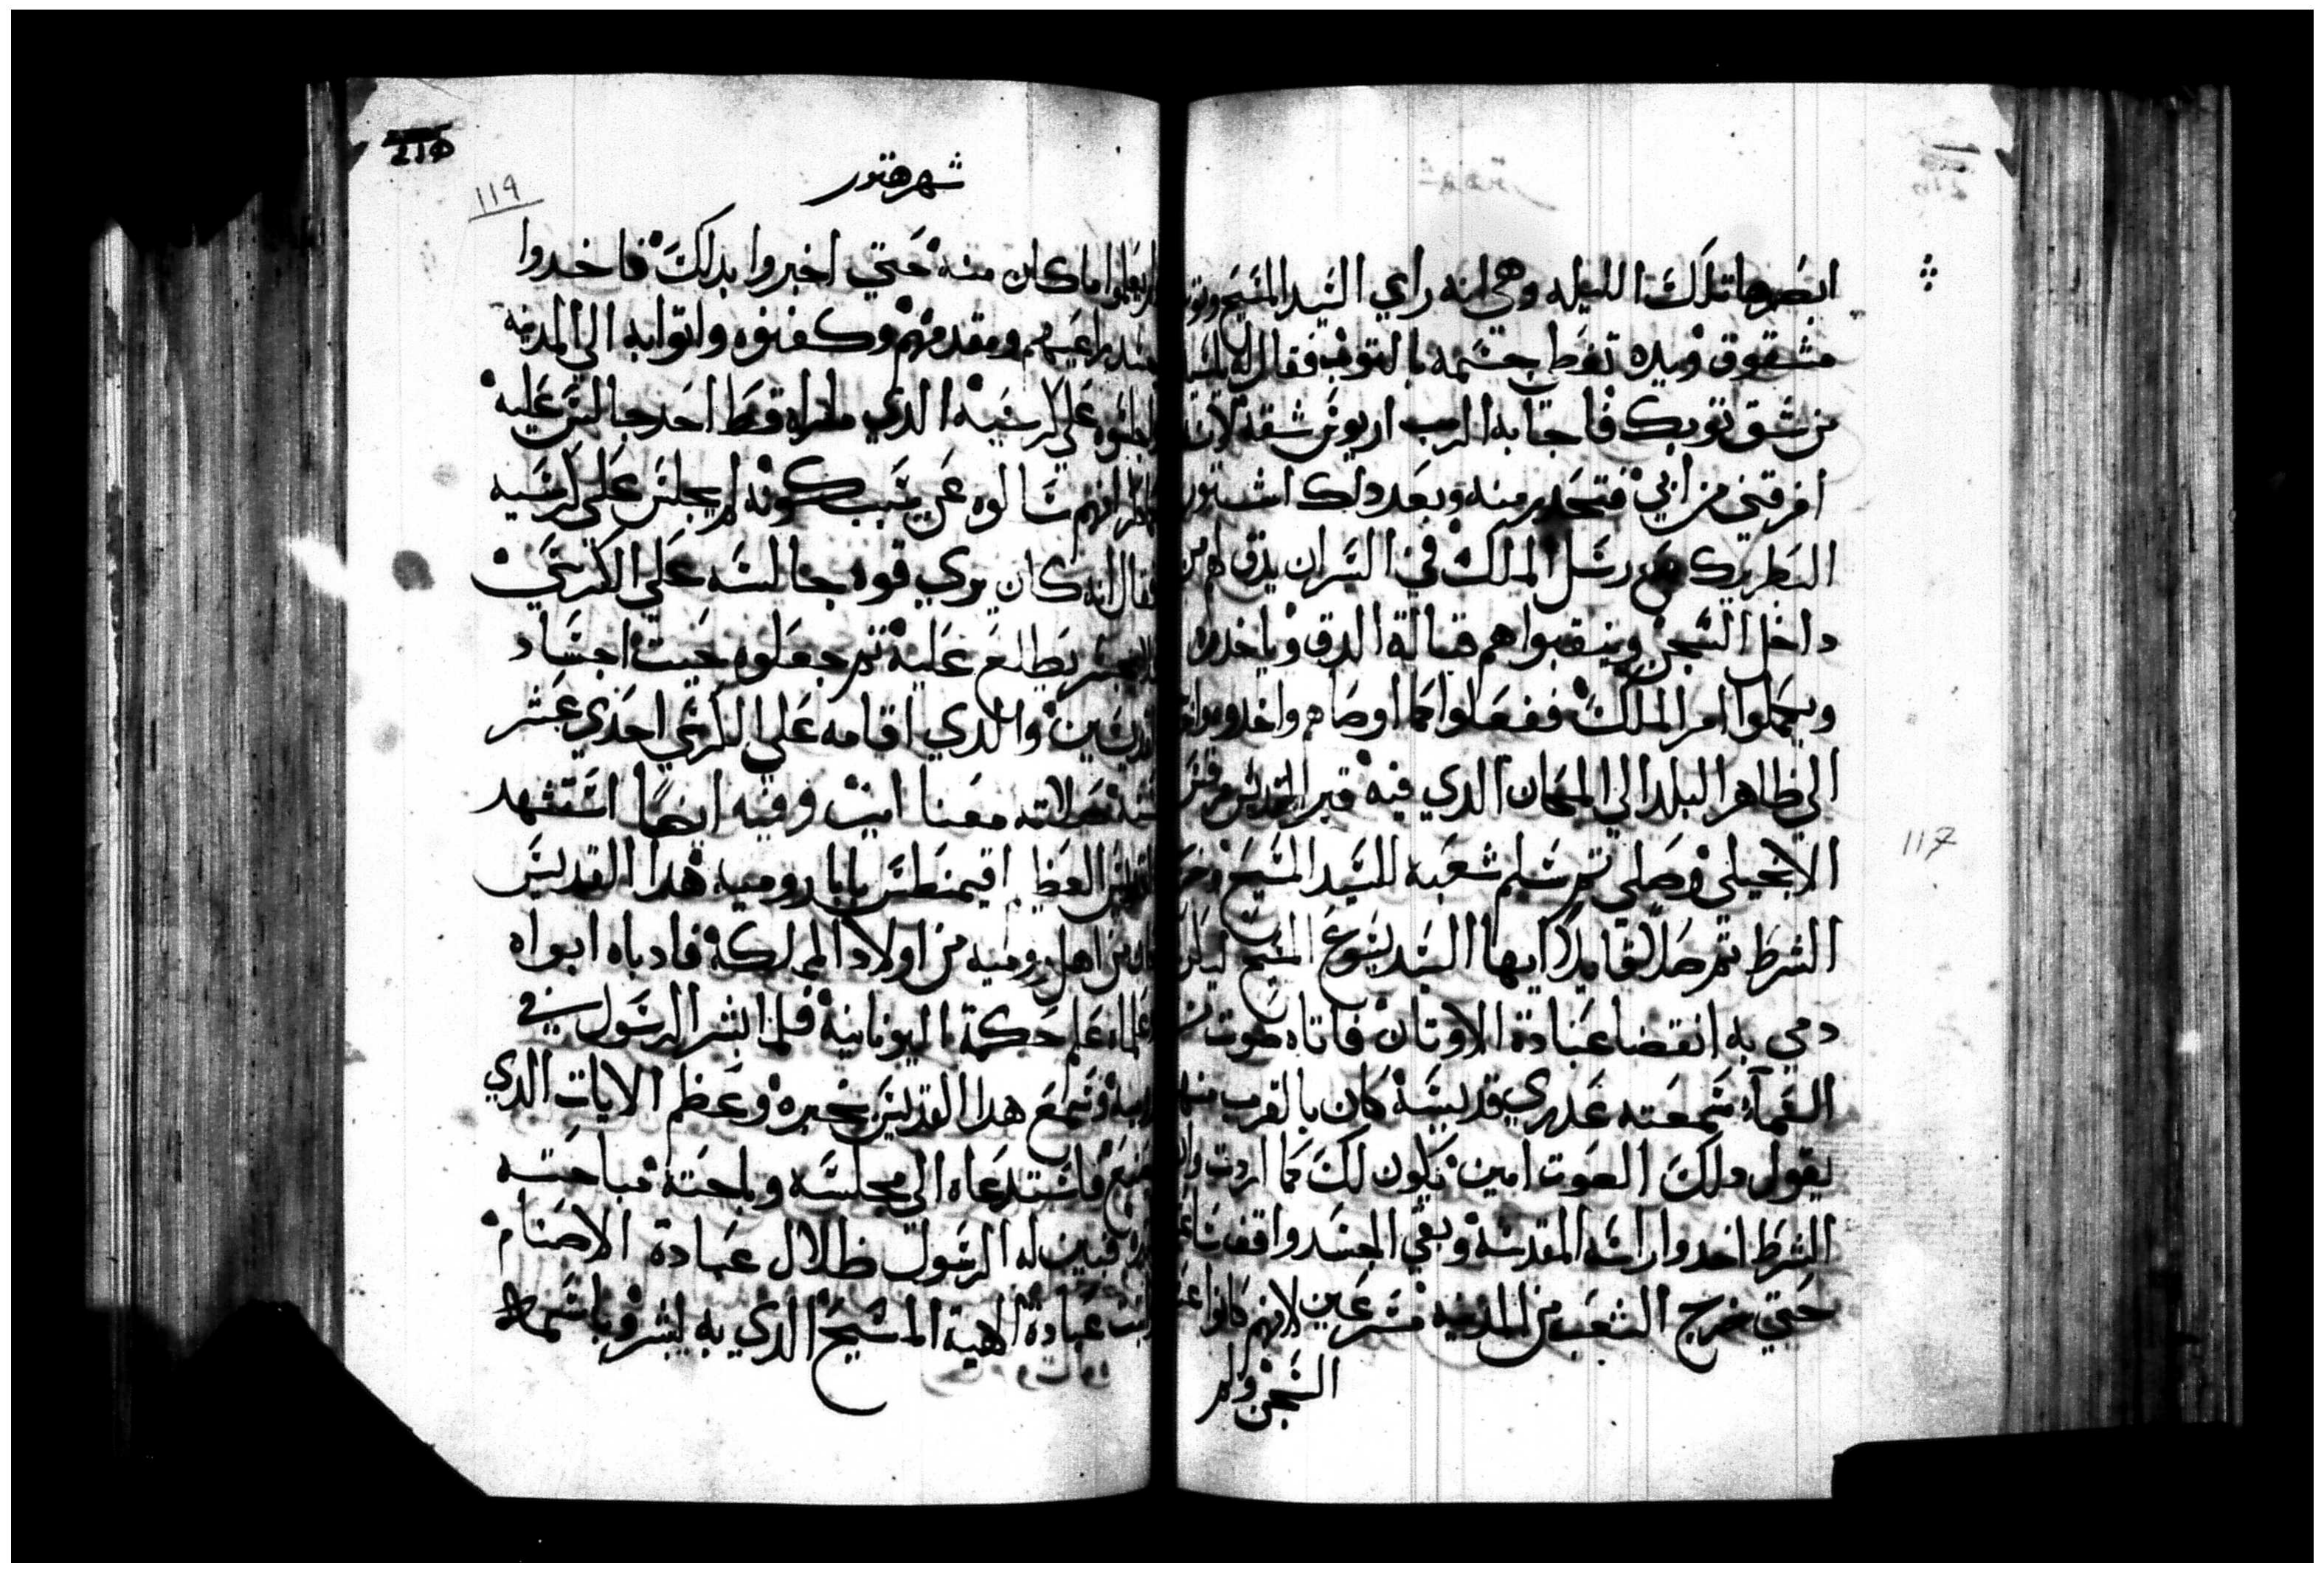 ابصرها تلك الليله وهي انه راي السيد المسيح وتوبه
مشقوق وبيده تغط جسمه بالتوب فقال له
من شق توبك فاجابه الرب اريوس شقه لانه
افرقني من ابي فتحدر منه وبعد دلك اشتور
البطريرك مع رسل الملك في السر ان يدق لهم من
داخل السجن وينقبوا هم قبالة الدق وياخدوه
ويكملوا امر الملك ففعلوا كما اوصاهم واخدوه
الي ظاهر البلد الي المكان الدي فيه قبر القديس مرقس
الانجيلي وصلي تم سلم شعبه للسيد المسيح
الشرط تم صلي قايلا ايها السيد يسوع المسيح ليكن
دمي به انقضا عبادة الاوتان فاتاه صوت من
السماء سمعته عدري قديسة كان بالقرب منها
يقول دلك الصوت امين يكون لك كما اردت
الشرط اخدوا راسه المقدسة وبقي الجسد واقف
حتي خرج الشعب من المدينه مسرعين لانهم كانوا
السجن ولم
119
شهر هتور
لم يعلموا ما كان منه حتي اخبروا بدلك فاخدوا
ومقدمهم وكفنوه واتوا به الي المدينه
واجلسوه علي كرسيه الدي ما راه قط احد جالس عليه
سالوه عن سبب كونه لم يجلس علي كرسيه
فقال انه كان يري قوه جالسه علي الكرسي
يطلع عليه تم جعلوه حيت اجساد
القديسين والدي اقامه علي الكرسي احدي عشر
سنة صلاته معنا امين وفيه ايضا استشهد
القديس العظيم اقيمنطس بابا روميه هدا القديس
كان من اهل روميه من اولاد المملكة فادباه ابواه
وعلماه علم حكمة اليونانية فلما بشر الرسول في
روميه وسمع هدا القديس بخبره وعظم الايات الدي
يصنع فاستدعاه الي مجلسه وباحته مباحته
فبين له الرسول ظلال عبادة الاصنام
واتبت عبادة الاهية المسيح الدي به يبشر وباسمه
117